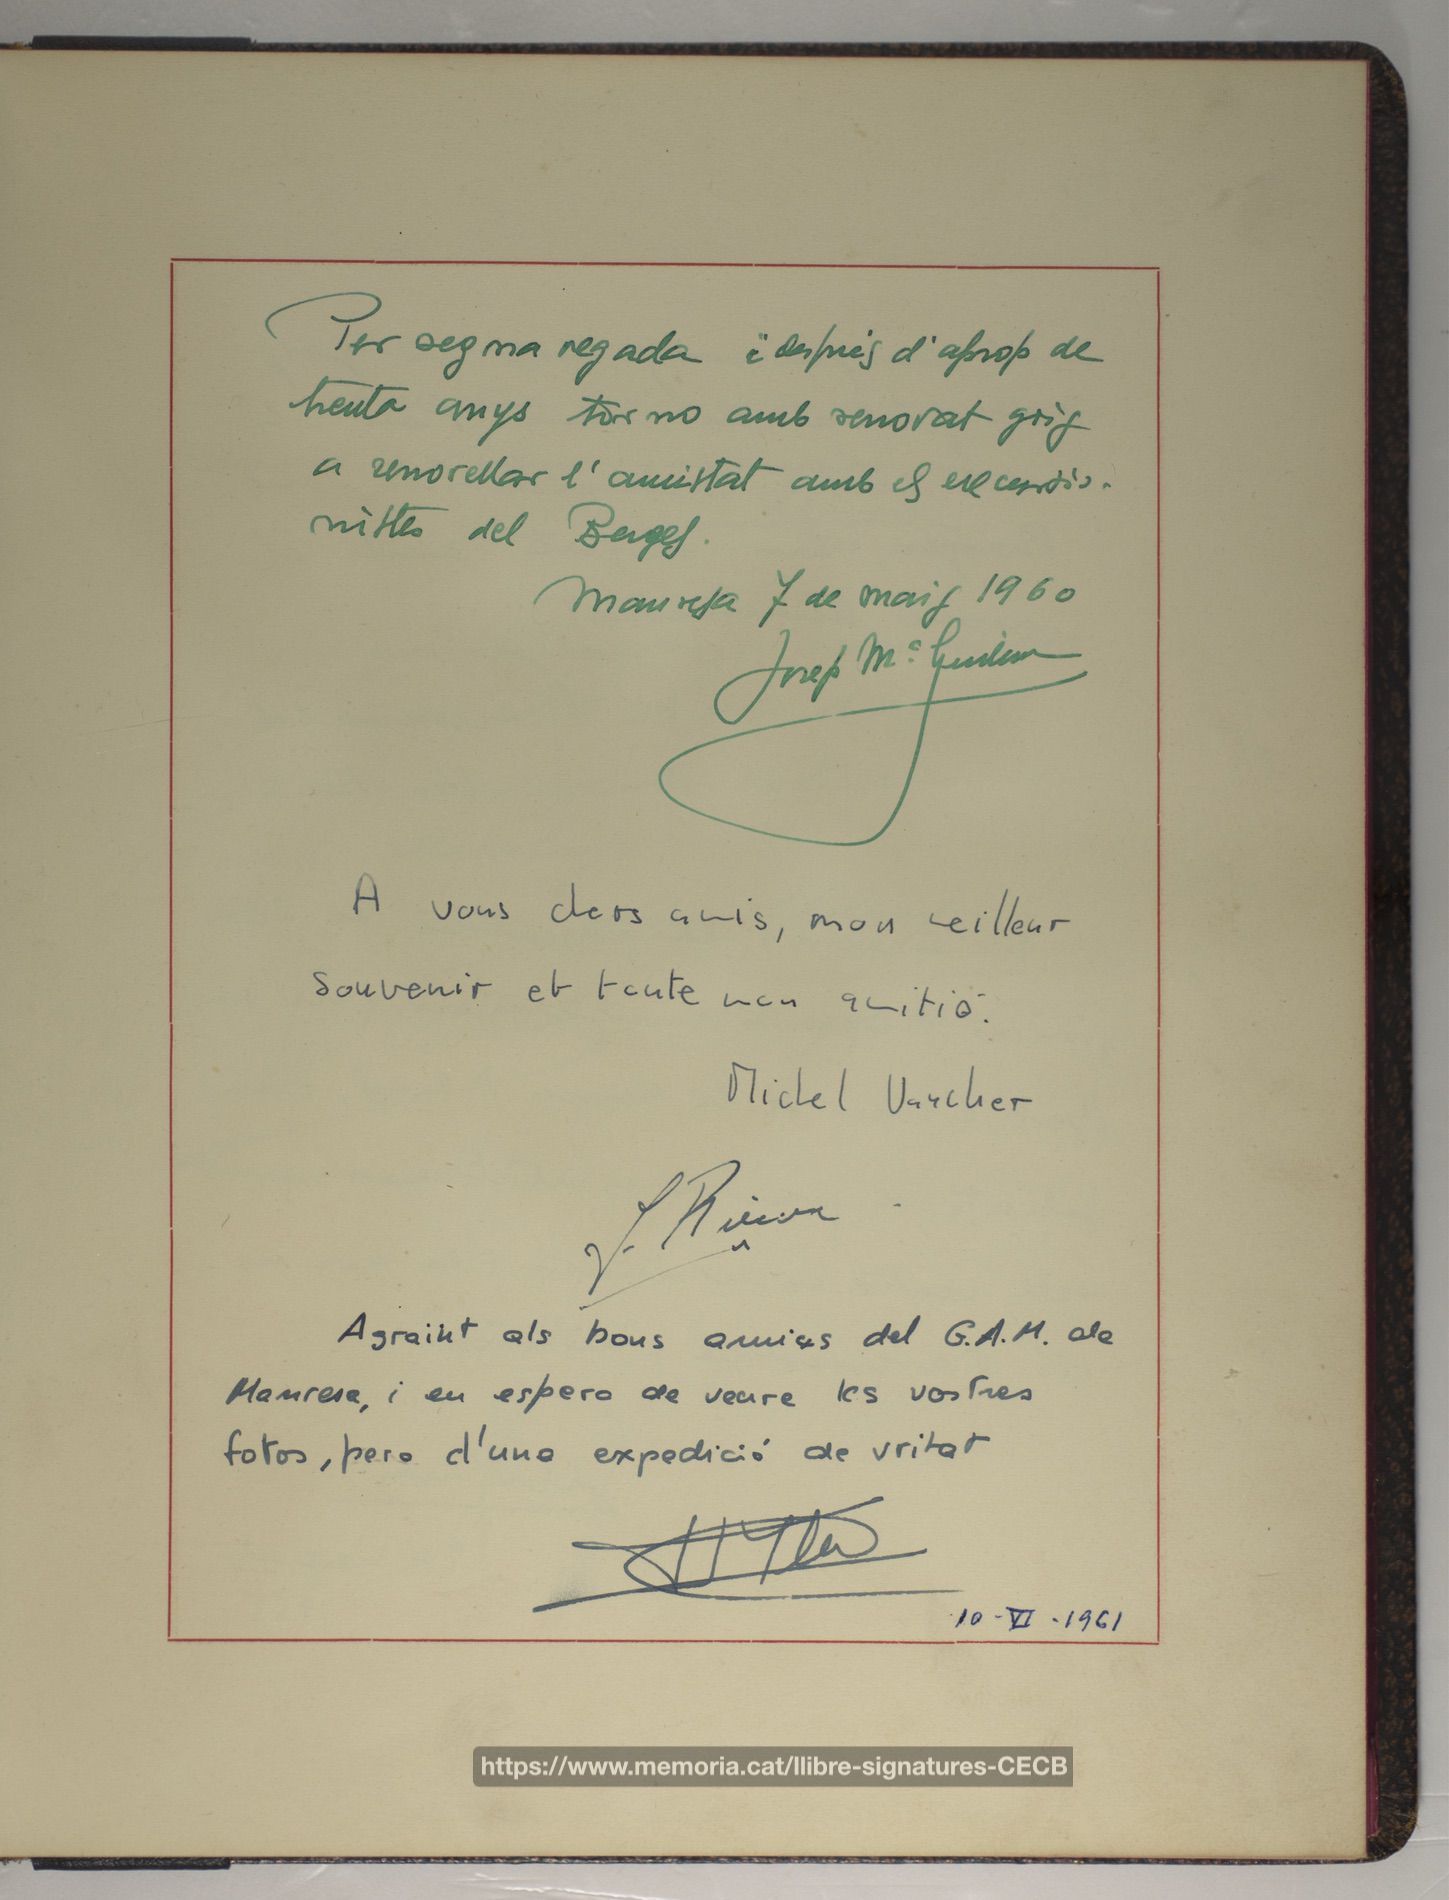 Per segona vegada i després d'aprop de
trenta anys torno amb renovat goig
a renovellar l'amistat amb els excursio-
nistes del Bages.
Manresa 7 de maig 1960
Josep Mª Guilera
A vous chers amis, mon meilleur
souvenir et toute mon amitié.
Michel Vaucher
J.
Agraint als bons amics del G.A.M. de
Manresa, i en espera de veure les vostres
fotos, pero d'una expedició de vritat
10-VI-1961
https://www.memoria.cat/llibre-signatures-CECB